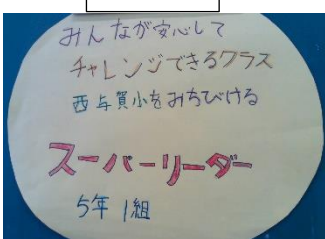 みんなが安心して
チャレンジできるクラス
西与賀小をみちびける
スーパーリーダー
5年1組